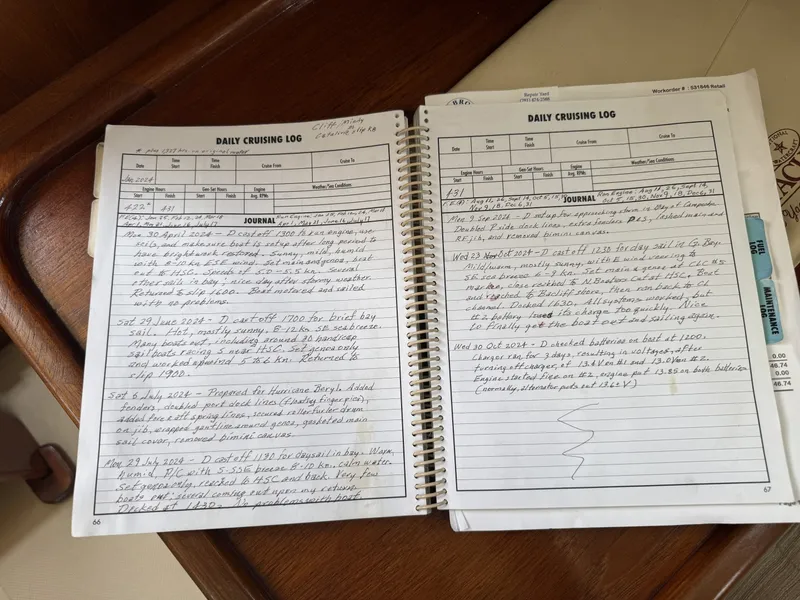 Repair Yard
Workorder # : 531846 Retail
DAILY CRUISING LOG
Cliff, Mindy
Catalina slip K8
Date
Time Start
Time Finish
Cruise From
Cruise To
Jan 2024
Engine Hours
Gen-Set Hours
Engine Avg. RPMs
Weather/Sea Conditions
Start
Finish
Start
Finish
422
431
JOURNAL
Mon 30 April 2024 - D cast off 1300 to run engine, use
sails, and make sure boat is setup after long period to
have brightwork restored. Sunny, mild, humid
with 8-10 kn ESE wind. Set main and genoa, beat
out to HSC. Speeds of 5.0-5.5 kn. Several
other sails in bay; nice day after stormy weather.
Returned to slip 1600. Boat motored and sailed
with no problems.
Sat 29 June 2024 - D cast off 1700 for brief bay
sail. Hot, mostly sunny, 8-12 kn SE sea breeze.
Many boats out, including around 30 handicap
sailboats racing S near HSC. Set genoa only
and worked upwind 5 to 6 kn. Returned to
slip 1900.
Sat 6 July 2024 - Prepared for Hurricane Beryl. Added
fenders, doubled port dock lines (floating finger pier),
added fore & aft spring lines, secured roller furler drum
on jib, wrapped gantline around genoa, gasketed main
sail cover, removed bimini canvas.
Mon 29 July 2024 - D cast off 1130 for daysail in bay. Warm,
humid, P/C with S-SSE breeze 8-10 kn, calm water.
Set genoa only, reached to HSC and back. Very few
boats out; several coming out upon my return.
Docked at 1430. No problems with boat.
66
DAILY CRUISING LOG
Date
Time Start
Time Finish
Cruise From
Cruise To
Engine Hours
Gen-Set Hours
Engine Avg. RPMs
Weather/Sea Conditions
Start
Finish
Start
Finish
431
Run Engine: Aug 16, 26, Sept 14,
Oct 5, 18, 30, Nov 9, 18, Dec 6, 31
JOURNAL
Mon 9 Sep 2024 - D setup for approaching storm in Bay of Campeche.
Doubled P side dock lines, extra fenders P&S, lashed main and
RF jib, and removed bimini canvas.
Wed 23 Oct 2024 - D cast off 1230 for day sail in G. Bay.
Mild/warm, mostly sunny, with E wind veering to
SE sea breeze 6-9 kn. Set main & genoa at CLC #5
marker, close reached to N. Boaters Cut at HSC. Beat
and reached to Bacliff shore, then ran back to CL
channel. Docked 1630. All systems worked, but
#2 battery lost its charge too quickly. Nice
to finally get the boat out and sailing again.
Wed 30 Oct 2024 - D checked batteries on boat at 1200.
Charger ran for 3 days, resulting in voltages, after
turning off charger, of 13.6V on #1 and 13.0V on #2.
Engine started fine on #2, engine put 13.85 on both batteries
(normally, alternator puts out 13.6± V)
67
FUEL LOG
MAINTENANCE LOG
0.00
46.74
0.00
46.74